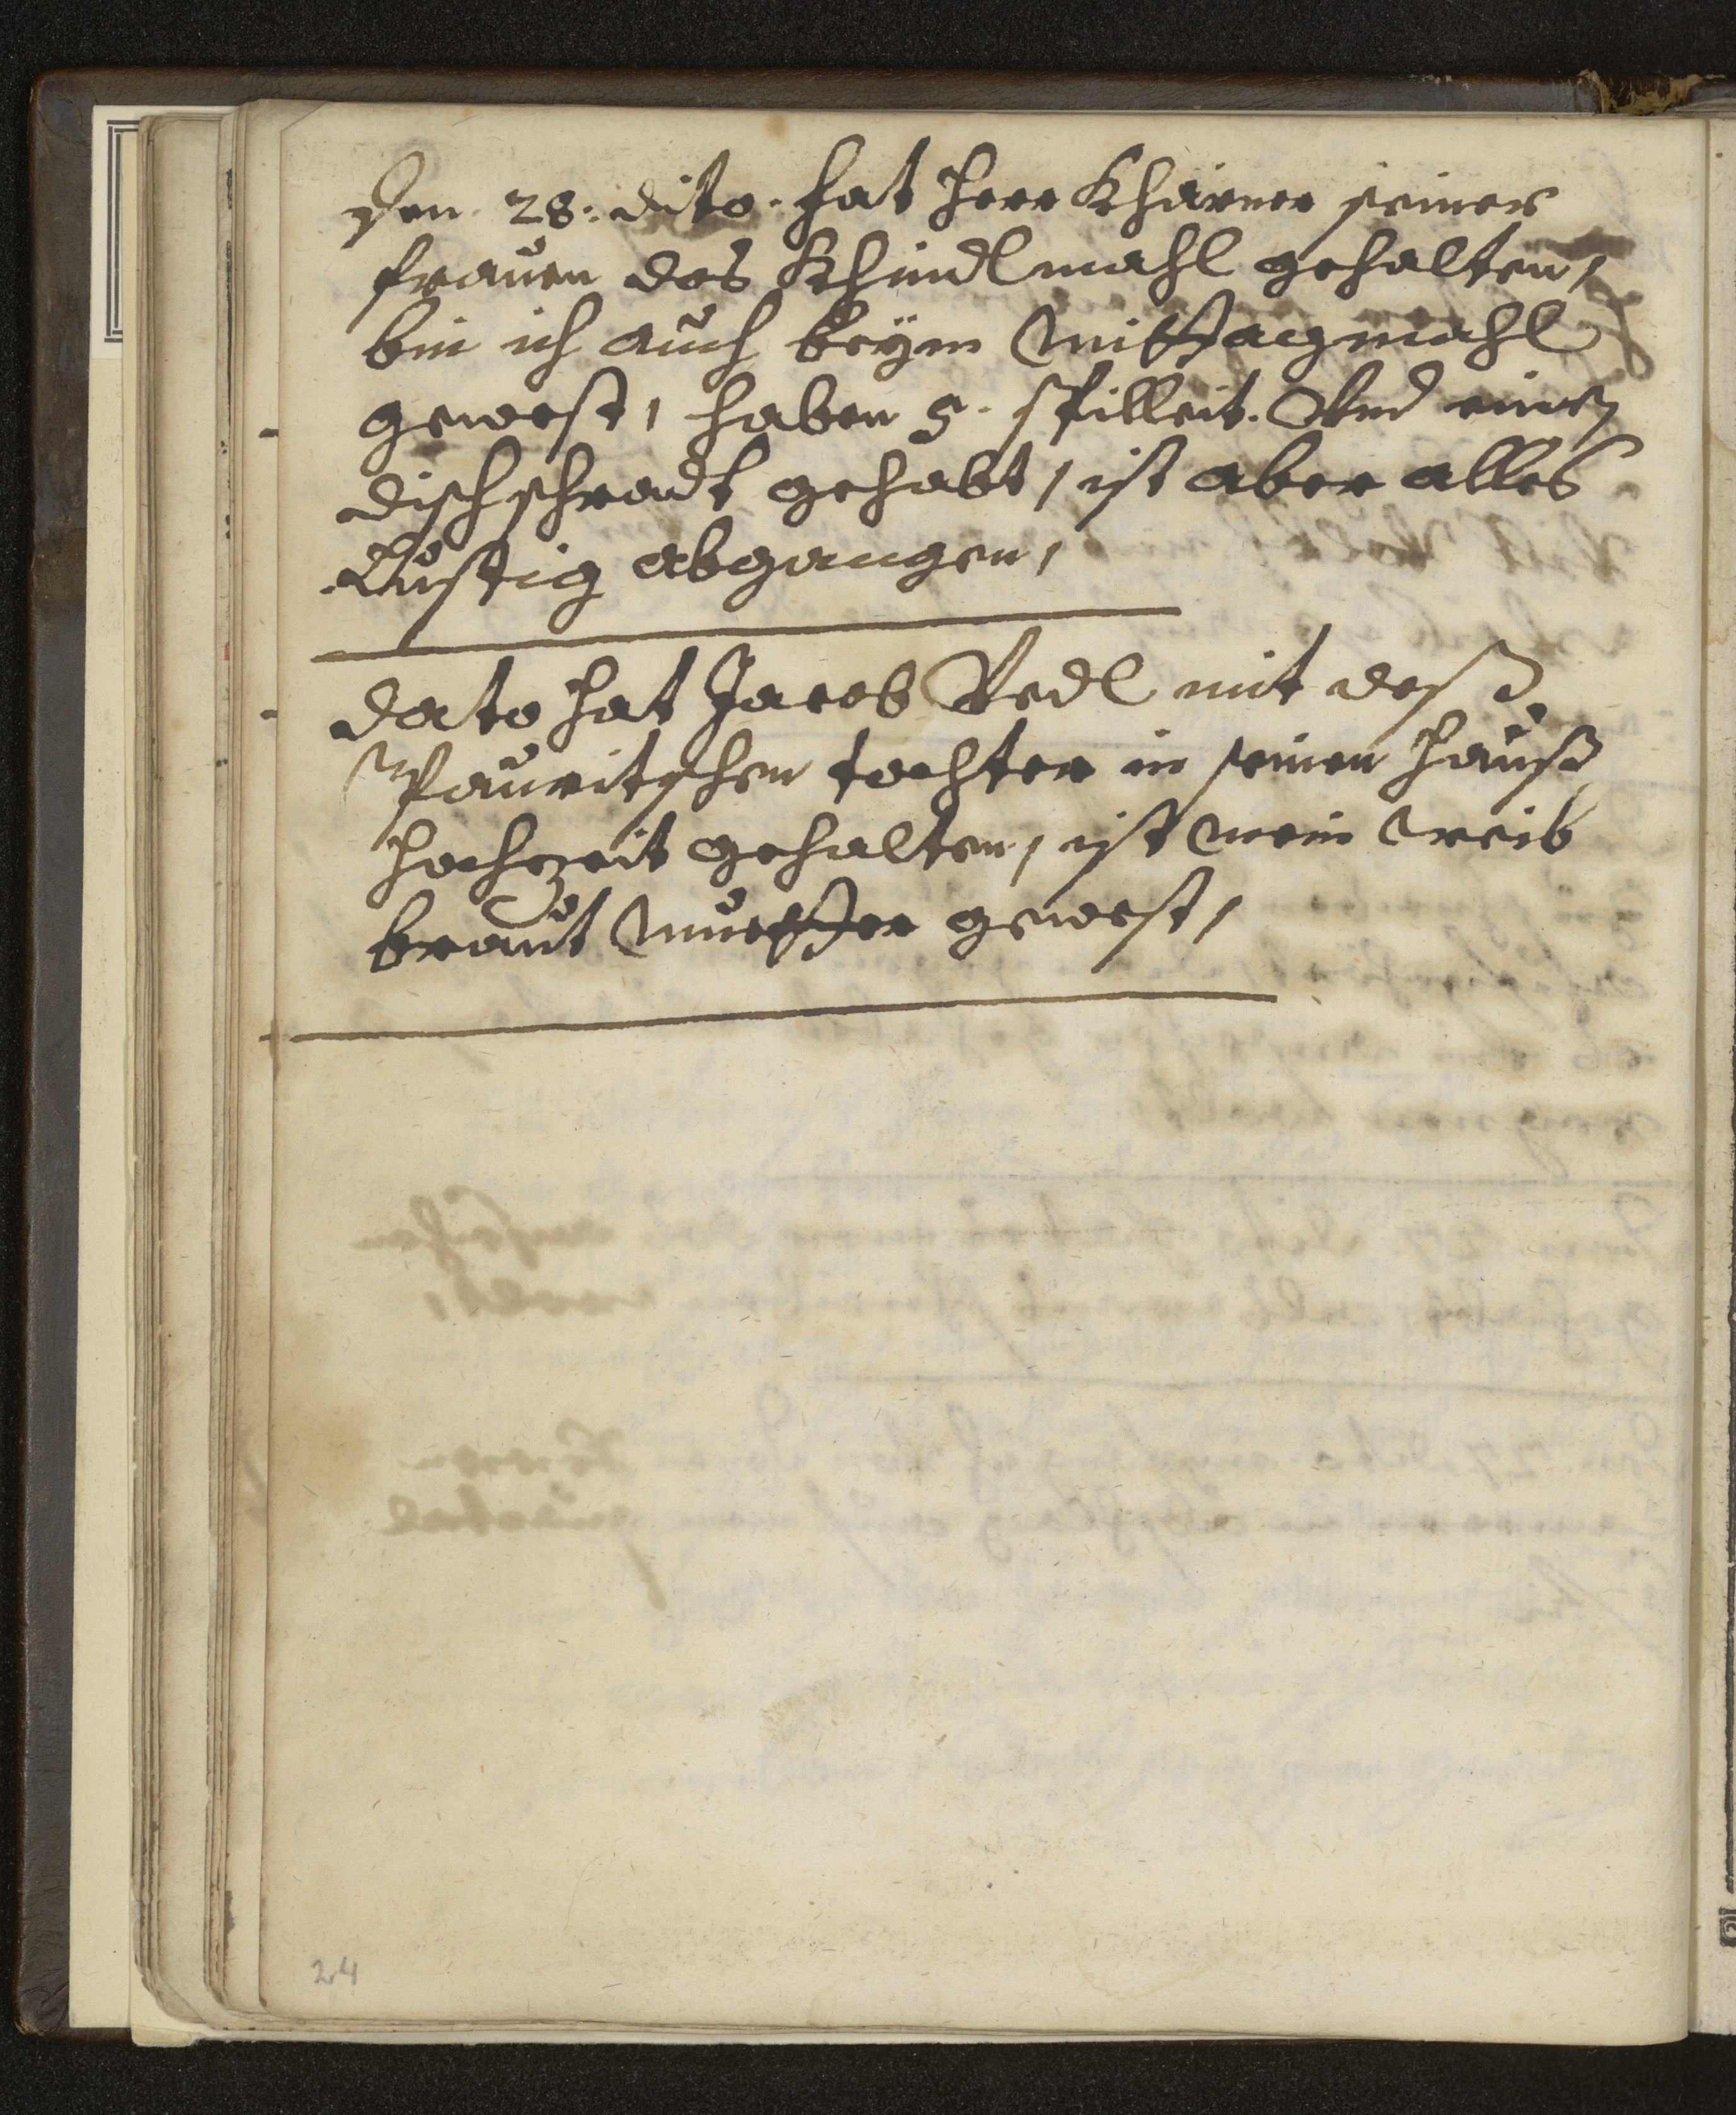 Den. 28. dito. hat Herr Khärner seiner
frauen das Khindlmahl gehalten,
bin ich auch beÿm Mittagmahl
gewest, haben 5. spilleit. Vnd einen
disch schradt gehabt, ist aber alles
Lustig abgangen,
Dato hat Jacob Redl mit deß
Pauritschen tochter in seinen hauß
hochzeit gehalten, ist mein weib
braut Muetter gewest,
24